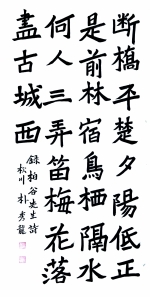 断橋平楚夕陽低正
是前林宿鳥栖隔水
何人三弄笛梅花落
盡古城西
錄柏谷先生詩
秋川 朴秀龍